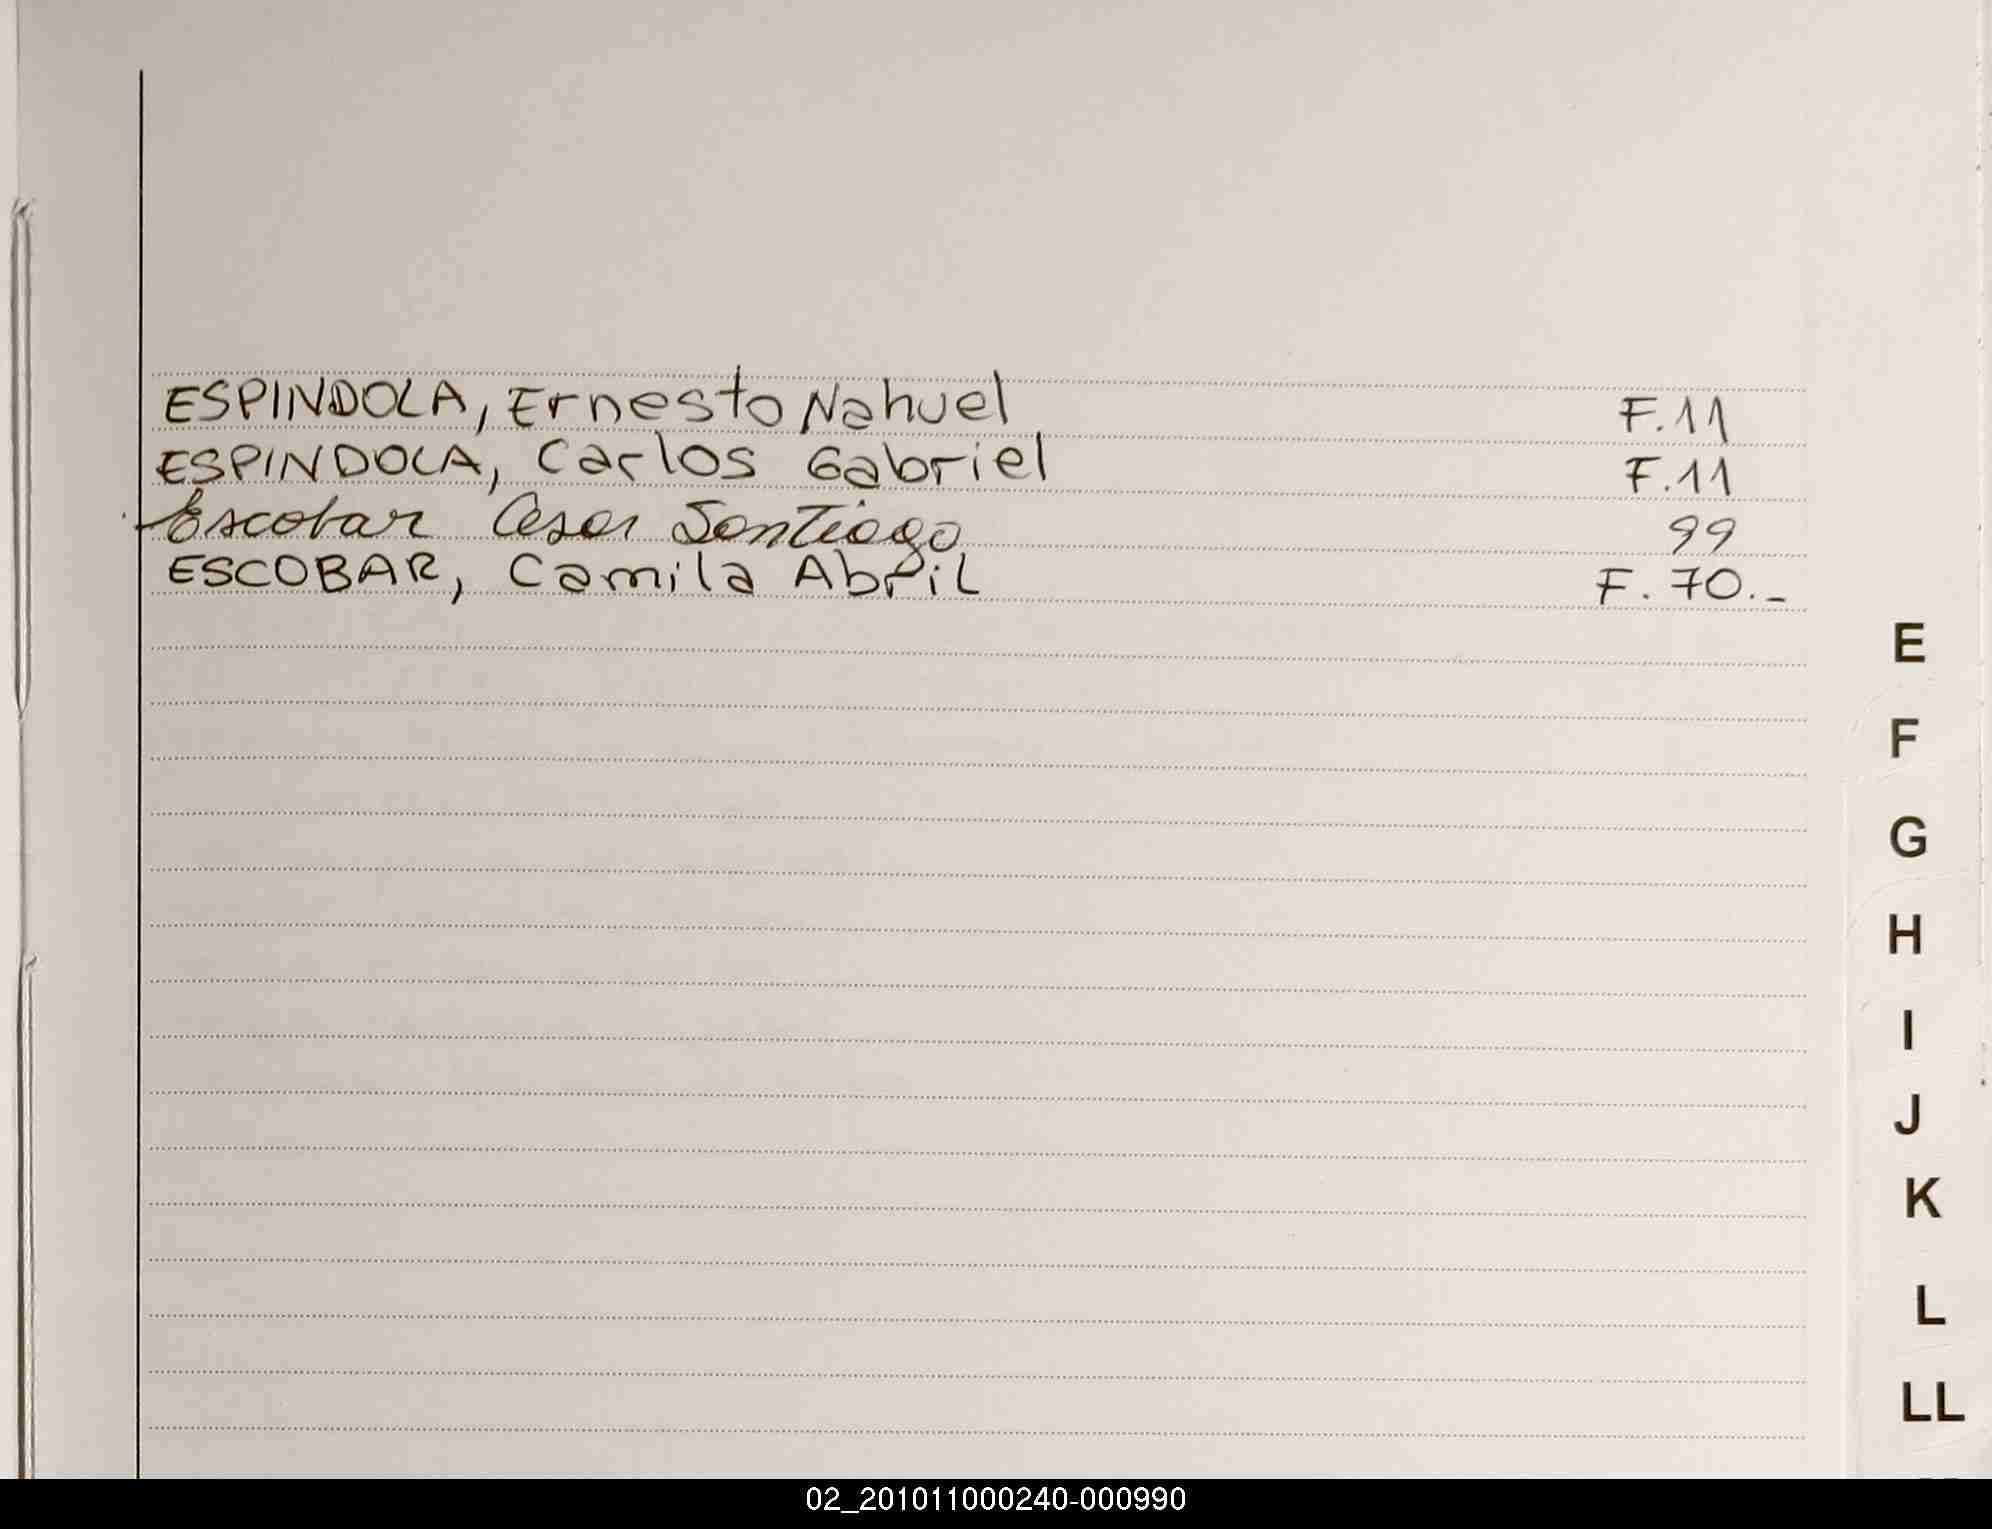 ESPINDOLA, Ernesto Nahuel F.11
ESPINDOLA, Carlos Gabriel F.11
Escobar Cesar Santiago 99
ESCOBAR, Camila Abril F. 70.-
E
F
G
H
I
J
K
L
LL
02_201011000240-000990